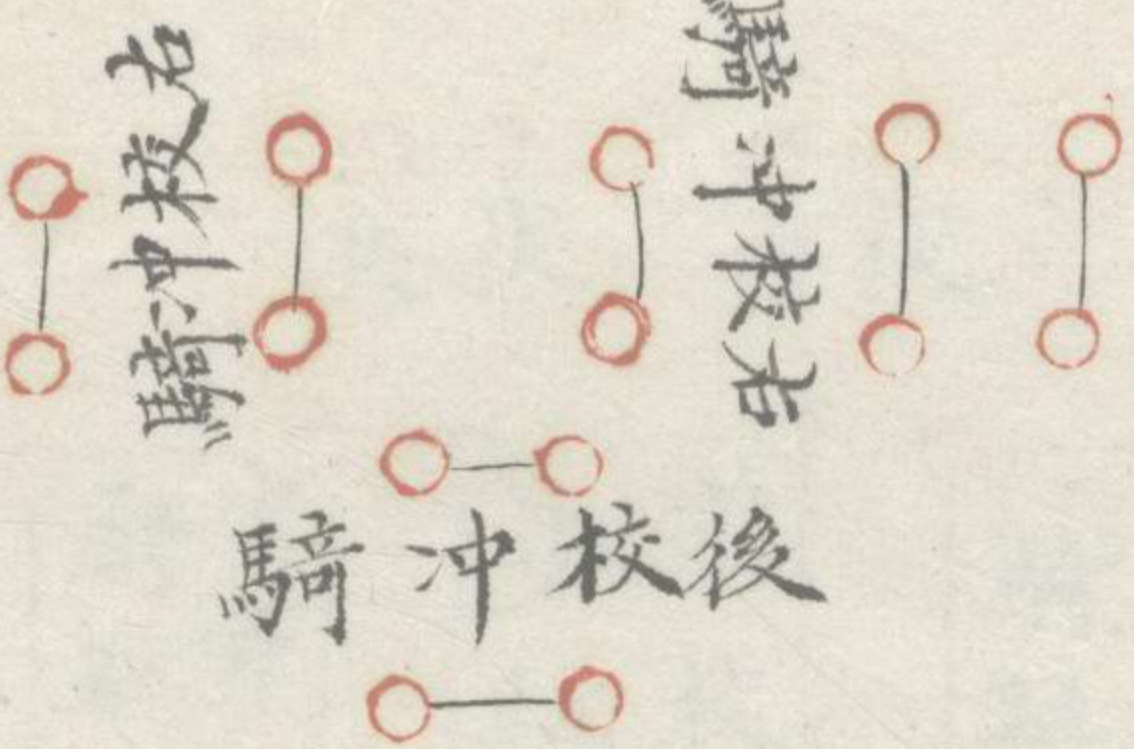 右校冲騎
右校冲騎
後校冲騎